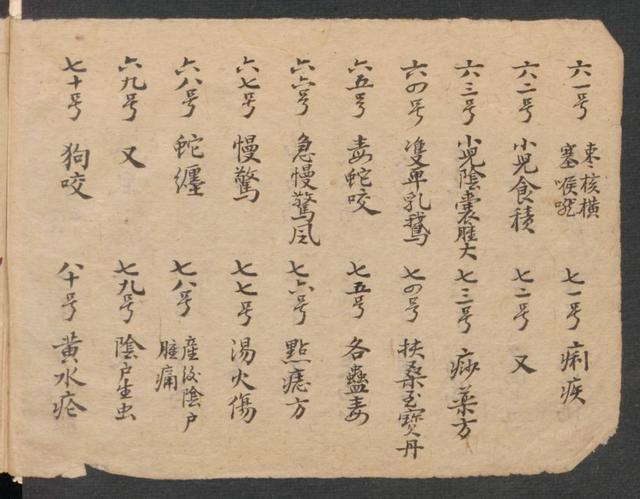 六一号 枣核横塞喉咙
六二号 小児食積
六三号 小児陰囊腫大
六四号 隻单乳鵝
六五号 毒蛇咬
六六号 急慢驚风
六七号 慢驚
六八号 蛇纒
六九号 又
七十号 狗咬
七一号 痢疾
七二号 又
七三号 痧薬方
七四号 扶桑至寳丹
七五号 各蠱毒
七六号 點痣方
七七号 湯火傷
七八号 產後陰户腫痛
七九号 陰户生虫
八十号 黄水疮